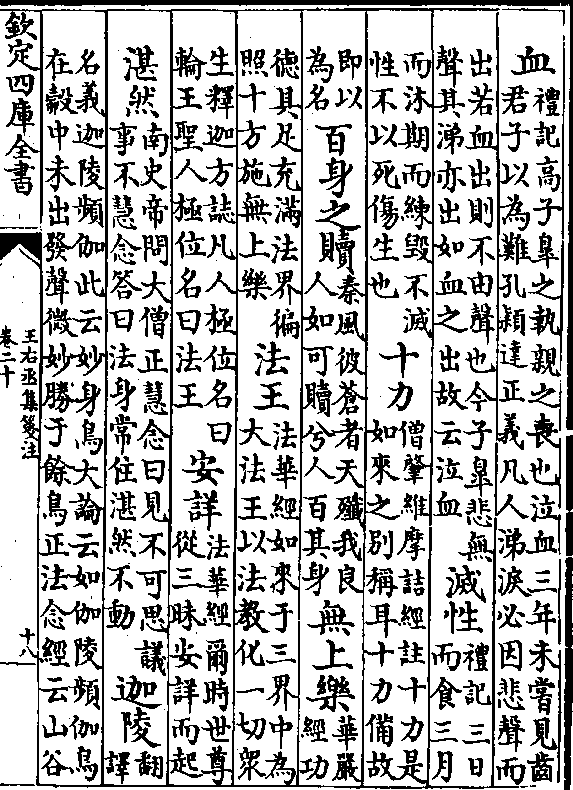 血禮記高子臯之執親之喪也泣血三年未嘗見齒君子以為難孔穎達正義凡人涕淚必因悲聲而
出若血出則不由聲也今子臯悲無聲其涕亦出如血之出故云泣血滅性禮記三日而食三月
而沐期而練毀不滅性不以死傷生也十力僧肇維摩詰經註十力是如來之別稱耳十力備故
即以為名百身之贖秦風彼蒼者天殲我良人如可贖兮人百其身無上樂華嚴經功
德具足充滿法界徧照十方施無上樂法王法華經如來于三界中為大法王以法教化一切衆
生釋迦方誌凡人極位名曰輪王聖人極位名曰法王安詳法華經爾時世尊從三昧安詳而起
湛然南史帝問大僧正慧念曰見不可思議事不慧念答曰法身常住湛然不動迦陵翻譯
名義迦陵頻伽此云妙身鳥大論云如伽陵頻伽鳥在殼中未出發聲微妙勝于餘鳥正法念經云山谷
欽定四庫全書
王右丞集箋注
卷二十
十八